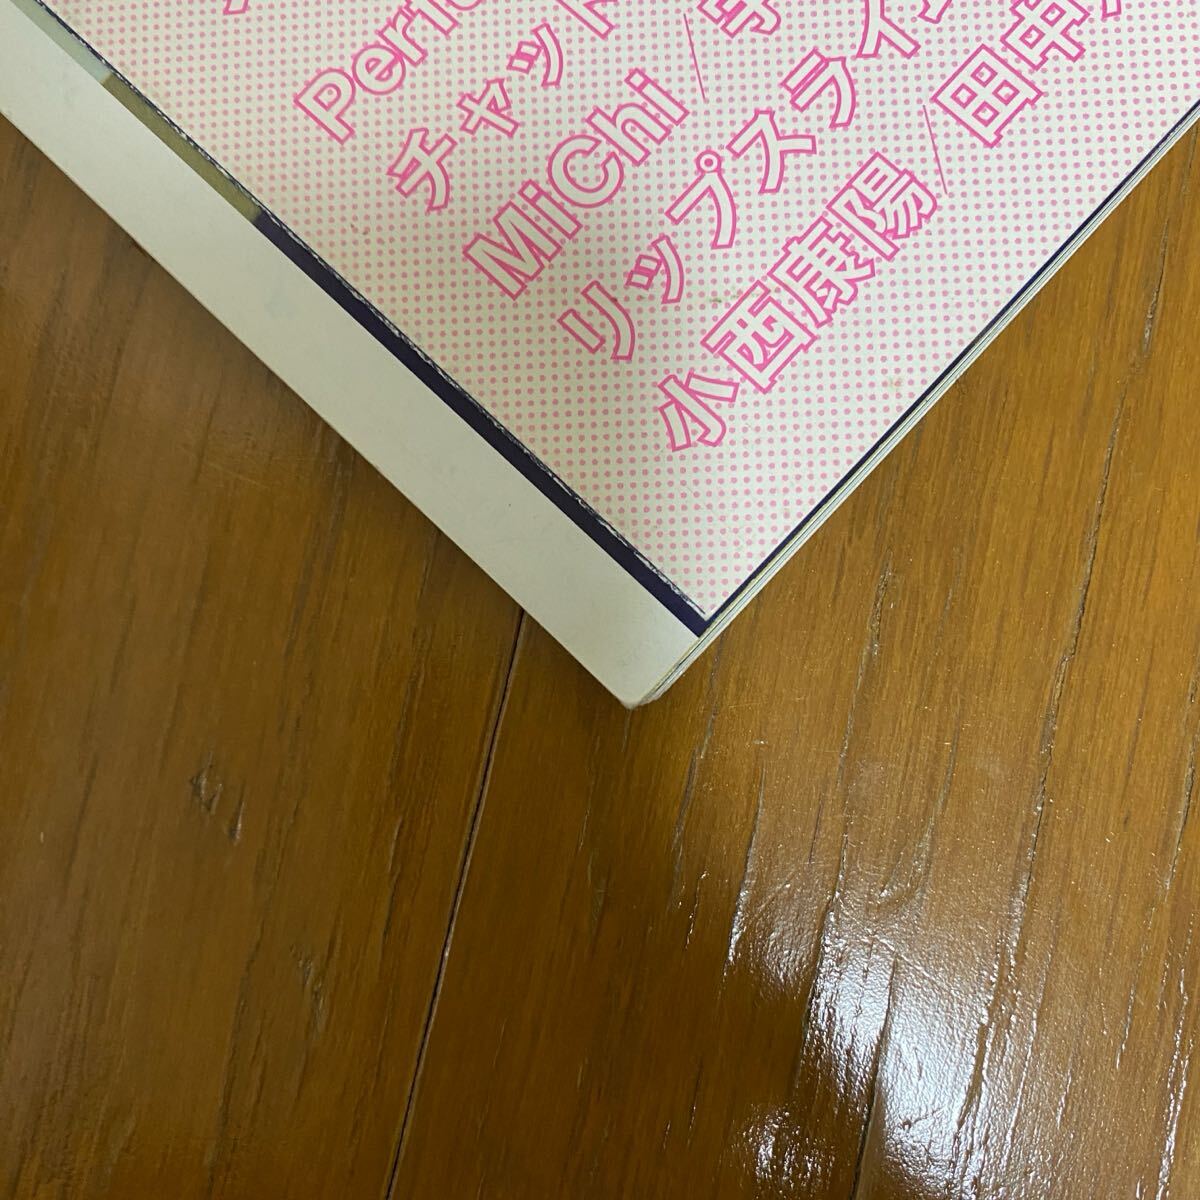 Perf
チャット
MiChi / 宇
リップスライ
小西康陽 / 田中